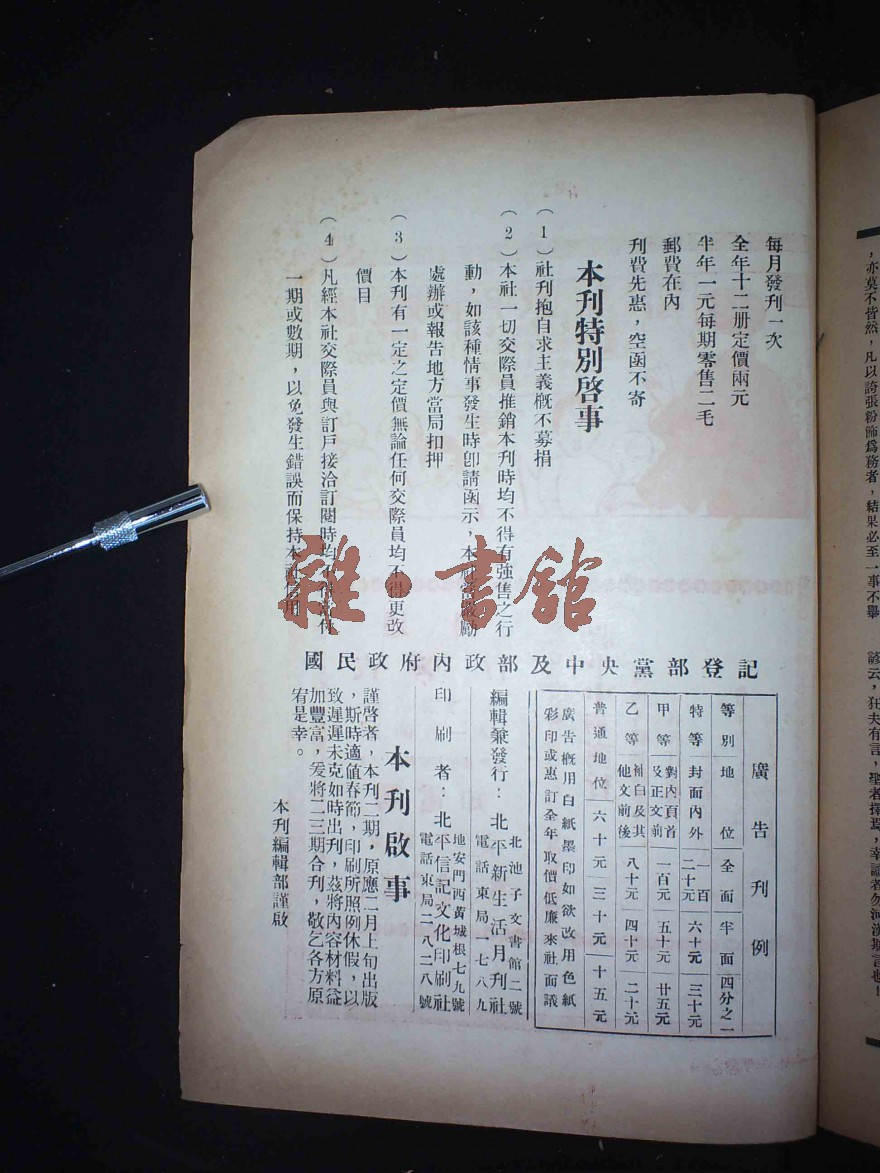 每月發刊一次
全年十二册定價兩元
半年一元每期零售二毛
郵費在內
刊費先惠，空函不寄
本刊特別啓事
（1）社刊抱自求主義概不募捐
（2）本社一切交際員推銷本刊時均不得有強售之行
動，如該種情事發生時卽請函示，本社
處辦或報告地方當局扣押
（3）本刊有一定之定價無論任何交際員均不得更改
價目
（4）凡經本社交際員與訂戶接洽訂閱時均
一期或數期，以免發生錯誤而保持本
國民政府內政部及中央黨部登記
廣告刊例
等別 地位 全面 半面 四分之一
特等 封面內外 一百二十元 六十元 三十元
甲等 對內頁首及正文前 一百元 五十元 廿五元
乙等 補白及其他文前後 八十元 四十元 二十元
普通地位 六十元 三十元 十五元
廣告概用白紙墨印如欲改用色紙
彩印或惠訂全年取價低廉來社面議
編輯兼發行：北平新生活月刊社
北池子文書館二號
電話東局一七八九
印刷者：北平信記文化印刷社
地安門西黃城根七九號
電話東局二八二八號
本刊啟事
謹啓者，本刊二期，原應二月上旬出版
，斯時適值春節，印刷所照例休假，以
致遲遲未克如時出刋，茲將內容材料益
加豐富，爰將二三期合刋，敬乞各方原
宥是幸。
本刊編輯部謹啟
，亦莫不皆然，凡以誇張粉飾爲務者，結果必至一事不舉
諺云，狂夫有言，聖者擇焉，幸讀者勿河漢斯言也！
雜·書館